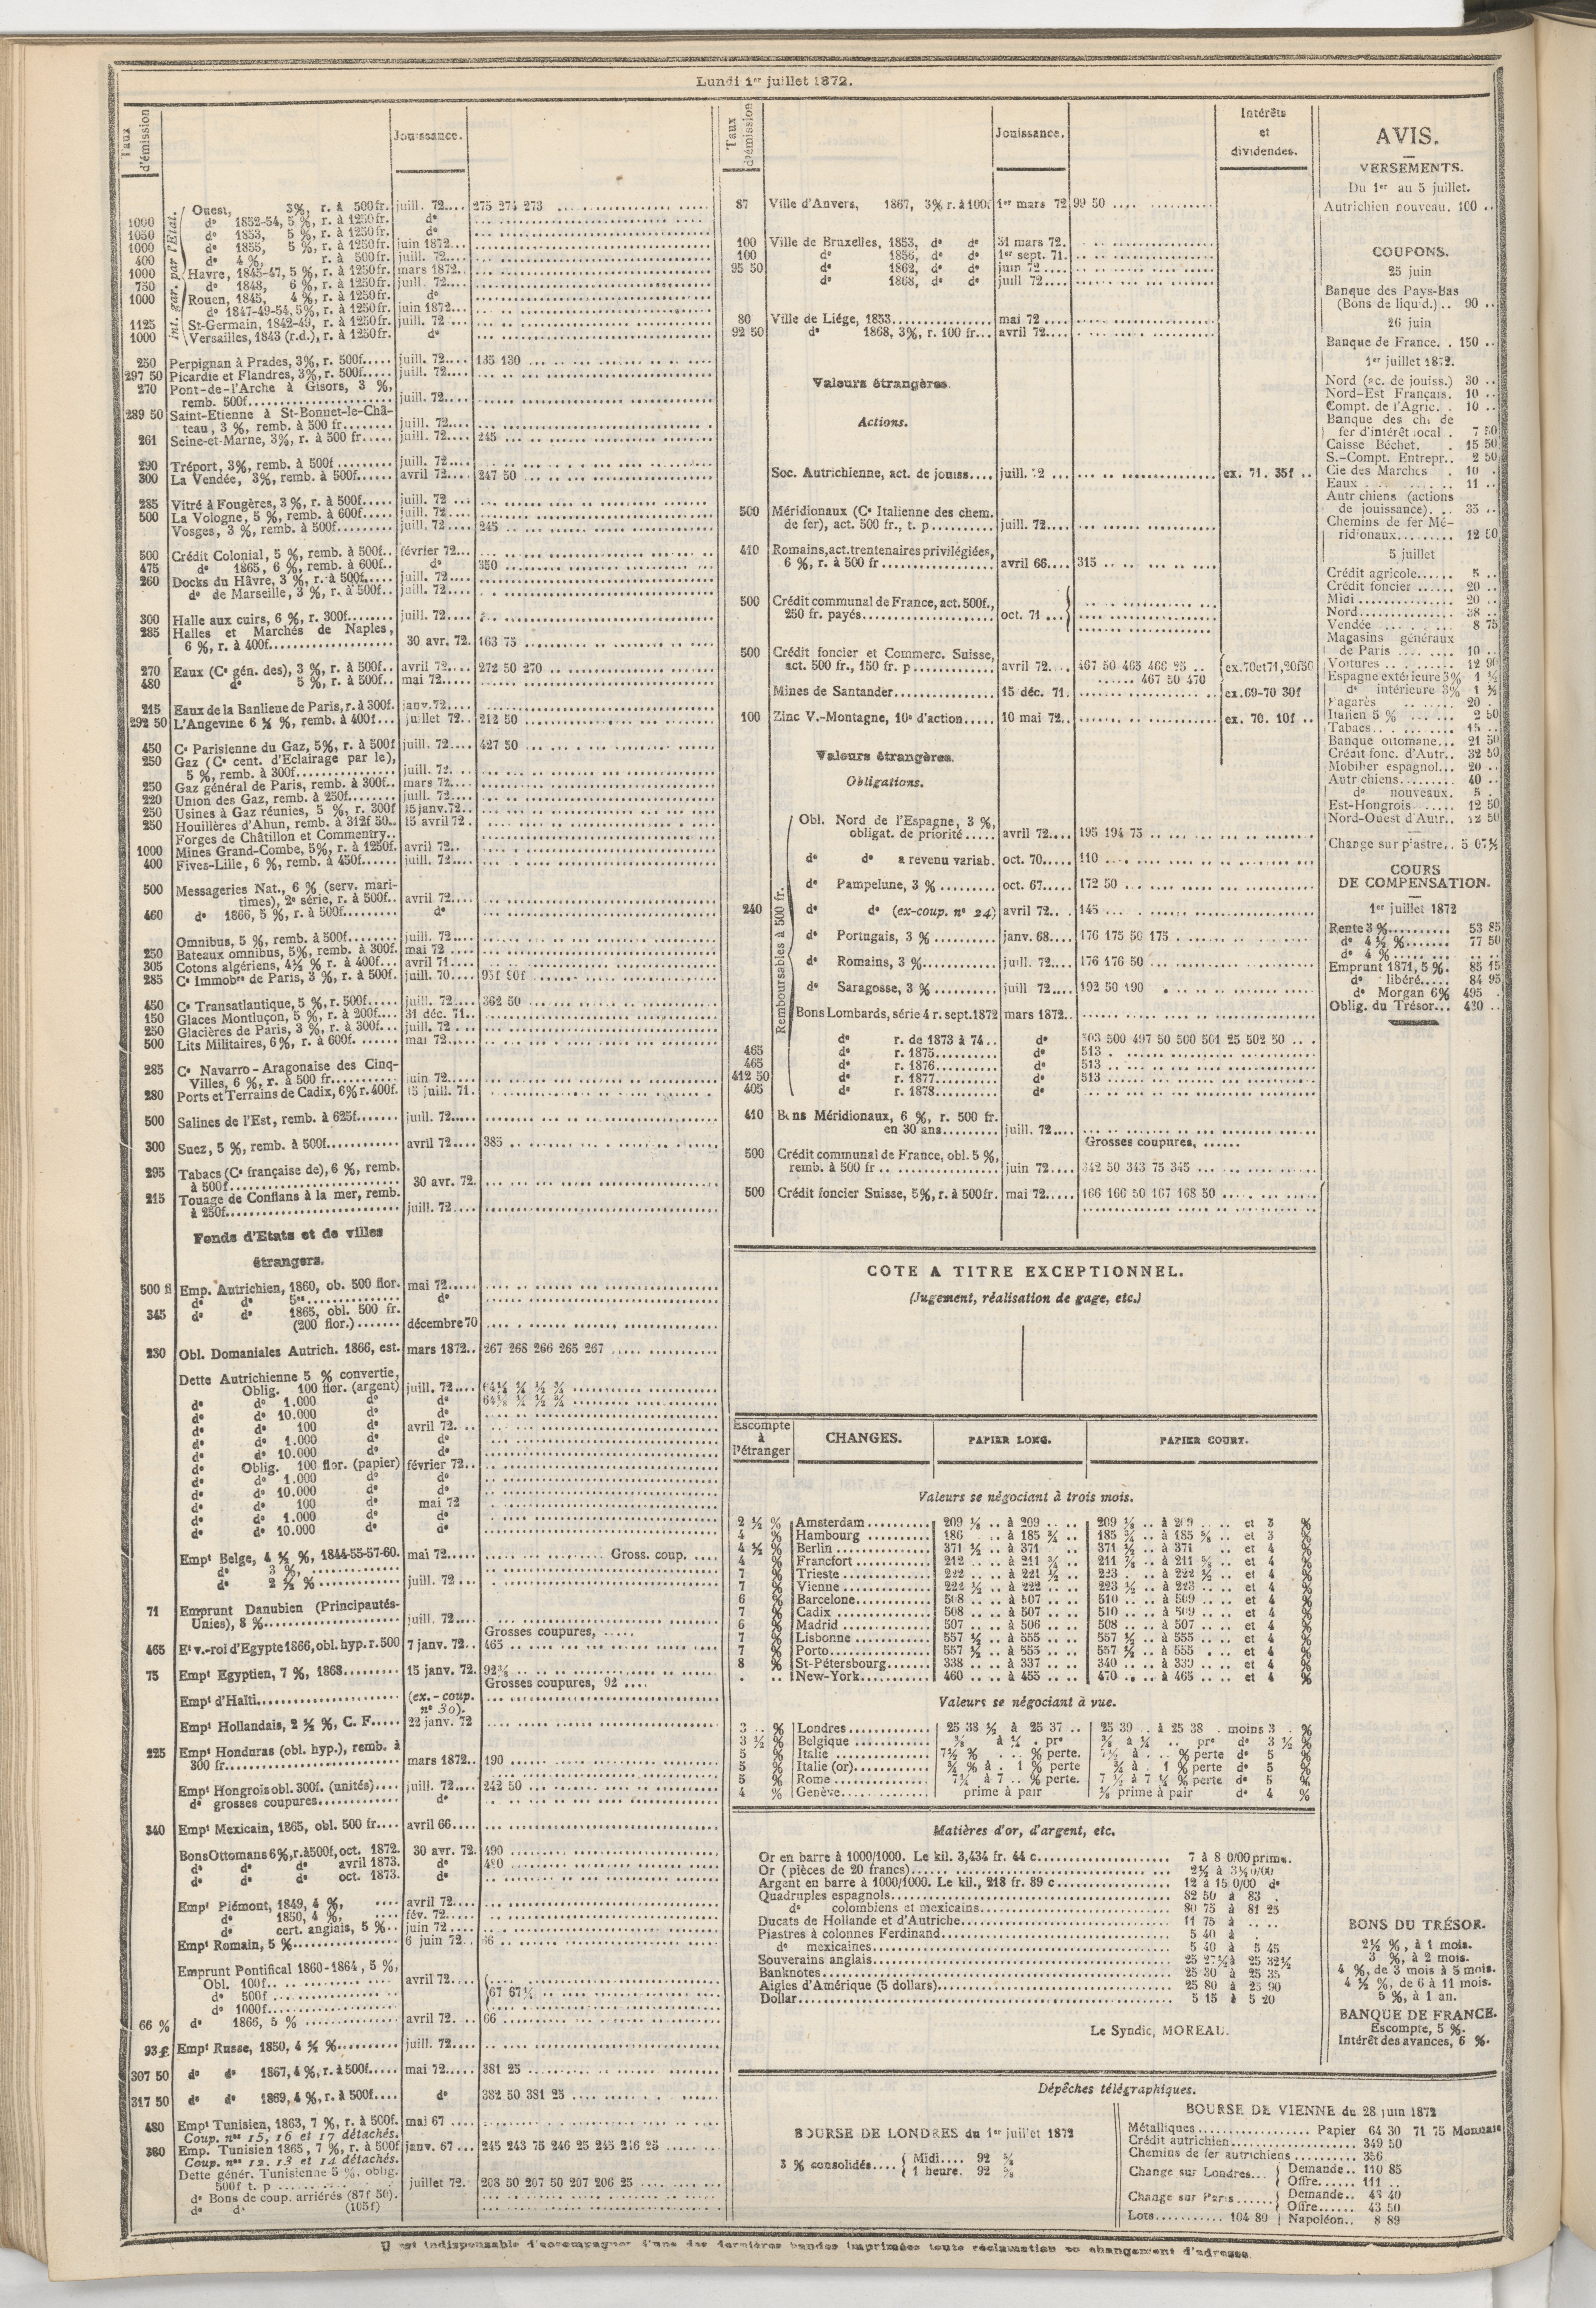 Lundi 1er juillet 1872.
Taux d'émission
Jouissance.
Int. gar. par l'État.
Ouest, 3%, r. à 500fr. juill. 72.... 275 274 273
1000 do 1852-54, 5 %, r. à 1250fr. do
1050 do 1853, 5 %, r. à 1250fr. do
1000 do 1855, 5 %, r. à 1250fr. juin 1872...
400 do 4 %, r. à 500fr. juill. 72....
1000 Havre, 1845-47, 5 %, r. à 1250fr. mars 1872.
750 do 1848, 6 %, r. à 1250fr. juill. 72....
1000 Rouen, 1845, 4 %, r. à 1250fr. do
do 1847-49-54, 5%, r. à 1250fr. juin 1872...
1125 St-Germain, 1842-49, r. à 1250fr. juill. 72 ...
1000 Versailles, 1843 (r.d.), r. à 1250fr. do
250 Perpignan à Prades, 3%, r. 500f..... juill. 72.... 135 130
297 50 Picardie et Flandres, 3%, r. 500f..... juill. 72....
270 Pont-de-l'Arche à Gisors, 3 %,
remb. 500f.................... juill. 72....
289 50 Saint-Etienne à St-Bonnet-le-Châ-
teau, 3 %, remb. à 500 fr....... juill. 72....
261 Seine-et-Marne, 3%, r. à 500 fr..... juill. 72.... 245
290 Tréport, 3%, remb. à 500f ......... juill. 72....
300 La Vendée, 3%, remb. à 500f...... avril 72.... 247 50
285 Vitré à Fougères, 3 %, r. à 500f..... juill. 72 ...
500 La Vologne, 5 %, remb. à 600f..... juill. 72....
Vosges, 3 %, remb. à 500f......... juill. 72.... 245
500 Crédit Colonial, 5 %, remb. à 500f.. février 72...
475 do 1865, 6 %, remb. à 600f.. do 350
260 Docks du Hâvre, 3 %, r. à 500f..... juill. 72....
do de Marseille, 3 %, r. à 500f.. juill. 72....
300 Halle aux cuirs, 6 %, r. 300f....... juill. 72....
285 Halles et Marchés de Naples,
6 %, r. à 400f.................. 30 avr. 72. 163 75
270 Eaux (Ce gén. des), 3 %, r. à 500f.. avril 72.... 272 50 270
480 do 5 %, r. à 500f.. mai 72.....
215 Eaux de la Banlieue de Paris, r. à 300f. janv. 72....
292 50 L'Angevine 6 ½ %, remb. à 400f... juillet 72.. 212 50
450 Ce Parisienne du Gaz, 5%, r. à 500f juillet 72.... 427 50
250 Gaz (Ce cent. d'Eclairage par le),
5 %, remb. à 300f............... juill. 72. ...
250 Gaz général de Paris, remb. à 300f.. mars 72....
220 Union des Gaz, remb. à 250f....... juill. 72....
250 Usines à Gaz réunies, 5 %, r. 300f 15 janv. 72..
250 Houillères d'Ahun, remb. à 312f 50.. 15 avril 72.
Forges de Châtillon et Commentry..
1000 Mines Grand-Combe, 5%, r. à 1250f. avril 72..
400 Fives-Lille, 6 %, remb. à 450f...... juill. 72....
500 Messageries Nat., 6 % (serv. mari-
times), 2e série, r. à 500f.. avril 72....
460 do 1866, 5 %, r. à 500f......... do
Omnibus, 5 %, remb. à 500f........ juill. 72....
250 Bateaux omnibus, 5%, remb. à 300f. mai 72 ....
305 Cotons algériens, 4½ % r. à 400f... avril 71....
285 Ce Immobre de Paris, 3 %, r. à 500f. juill. 70.... 95f 90f
450 Ce Transatlantique, 5 %, r. 500f..... juill. 72.... 362 50
150 Glaces Montluçon, 5 %, r. à 200f.... 31 déc. 71..
250 Glacières de Paris, 3 %, r. à 300f... juill. 72 ...
500 Lits Militaires, 6%, r. à 600f....... mai 72.....
285 Ce Navarro-Aragonaise des Cinq-
Villes, 6 %, r. à 500 fr.......... juin 72.....
280 Ports et Terrains de Cadix, 6% r. 400f. 15 juill. 71.
500 Salines de l'Est, remb. à 625f....... juill. 72.....
300 Suez, 5 %, remb. à 500f............ avril 72.... 385
295 Tabacs (Ce française de), 6 %, remb.
à 500f......................... 30 avr. 72.
215 Touage de Conflans à la mer, remb.
à 250f......................... juill. 72....
Fonds d'Etats et de villes
étrangers.
500 fl Emp. Autrichien, 1860, ob. 500 flor. mai 72.....
do do 5es............... do
345 do do 1865, obl. 500 fr.
(200 flor.)....... décembre 70
230 Obl. Domaniales Autrich. 1866, est. mars 1872.. 267 268 266 265 267
Dette Autrichienne 5 % convertie,
Oblig. 100 flor. (argent) juill. 72....
do do 1.000 do do
do do 10.000 do do
do do 100 do avril 72. ..
do do 1.000 do do
do do 10.000 do do
do Oblig. 100 flor. (papier) février 72..
do do 1.000 do do
do do 10.000 do do
do do 100 do mai 72
do do 1.000 do do
do do 10.000 do do
Empt Belge, 4 ½ %, 1844-55-57-60. mai 72..... Gross. coup. ....
do 3 %, .............
do 2 ½ %............ juill. 72 ...
71 Emprunt Danubien (Principautés-
Unies), 8 %.................... juill. 72....
Grosses coupures, .....
465 Et v.-roi d'Egypte 1866, obl. hyp. r. 500 7 janv. 72.. 465
75 Empt Egyptien, 7 %, 1868......... 15 janv. 72. 92⅜
Grosses coupures, 92 ....
Empt d'Haïti.................... (ex.-coup.
no 30).
Empt Hollandais, 2 ½ %, C. F..... 22 janv. 72
225 Empt Honduras (obl. hyp.), remb. à
300 fr......................... mars 1872.. 190
Empt Hongrois obl. 300f. (unités).... juill. 72.... 242 50
do grosses coupures............ do
340 Empt Mexicain, 1865, obl. 500 fr.... avril 66....
Bons Ottomans 6%, r. à 500f, oct. 1872. 30 avr. 72. 490
do do do avril 1873. do 480
do do do oct. 1873. do
Empt Piémont, 1849, 4 %, .... avril 72....
do 1850, 4 %, .... fév. 72....
do cert. anglais, 5 %.. juin 72 ....
Empt Romain, 5 %............... 6 juin 72.. 66
Emprunt Pontifical 1860-1864, 5 %,
Obl. 100f.. .. ......... avril 72....
do 500f .............. 67 67½
do 1000f..............
66 % do 1866, 5 % ............ avril 72... 66
93 £ Empt Russe, 1850, 4 ½ %......... juill. 72....
307 50 do do 1867, 4 %, r. à 500f..... mai 72..... 381 25
317 50 do do 1869, 4 %, r. à 500f.... do 382 50 381 25
480 Empt Tunisien, 1863, 7 %, r. à 500f. mai 67 ....
Coup. nos 15, 16 et 17 détachés.
380 Emp. Tunisien 1865, 7 %, r. à 500f janv. 67 ... 245 243 75 246 25 245 216 25
Coup. nos 12, 13 et 14 détachés.
Dette génér. Tunisienne 5 %, oblig.
500f t. p ............ juillet 72. 208 50 207 50 207 206 25
do Bons de coup. arriérés (87f 50).
do do (105f)
Taux d'émission
Jouissance.
Intérêts
et
dividendes.
87 Ville d'Anvers, 1867, 3% r. à 100f. 1er mars 72 99 50
100 Ville de Bruxelles, 1853, do do 31 mars 72.
100 do 1856, do do 1er sept. 71.
95 50 do 1862, do do juin 72 ....
do 1868, do do juill 72....
80 Ville de Liége, 1853............... mai 72 ....
92 50 do 1868, 3%, r. 100 fr... avril 72....
Valeurs étrangères.
Actions.
Soc. Autrichienne, act. de jouiss.... juill. 72 ... ex. 71. 35f ..
500 Méridionaux (Ce Italienne des chem.
de fer), act. 500 fr., t. p.......... juill. 72....
410 Romains, act. trentenaires privilégiées,
6 %, r. à 500 fr.................. avril 66.... 315
500 Crédit communal de France, act. 500f.,
250 fr. payés.................. oct. 71 ...
500 Crédit foncier et Commerc. Suisse,
act. 500 fr., 150 fr. p............ avril 72.... 467 50 465 466 25 .. ex. 70 et 71, 20f50
467 50 470
Mines de Santander............... 15 déc. 71. ex. 69-70 30f
100 Zinc V.-Montagne, 10e d'action..... 10 mai 72.. ex. 70. 10f ..
Valeurs étrangères.
Obligations.
Remboursables à 500 fr.
Obl. Nord de l'Espagne, 3 %,
obligat. de priorité..... avril 72.... 195 194 75
do do à revenu variab. oct. 70..... 110
do Pampelune, 3 % ......... oct. 67..... 172 50
240 do do (ex-coup. no 24) avril 72.. . 145
do Portugais, 3 % .......... janv. 68.... 176 175 50 175
do Romains, 3 %........... juill. 72.... 176 176 50
do Saragosse, 3 % .......... juill 72..... 192 50 190
Bons Lombards, série 4 r. sept. 1872 mars 1872..
do r. de 1873 à 74.. do 503 500 497 50 500 501 25 502 50
465 do r. 1875.......... do 513
465 do r. 1876.......... do 513
412 50 do r. 1877.......... do 513
405 do r. 1878.......... do
410 Bons Méridionaux, 6 %, r. 500 fr.
en 30 ans......... juill. 72....
Grosses coupures, ......
500 Crédit communal de France, obl. 5 %,
remb. à 500 fr.. ............... juin 72.... 342 50 343 75 345
500 Crédit foncier Suisse, 5%, r. à 500 fr. mai 72..... 166 166 50 167 168 50
COTE A TITRE EXCEPTIONNEL.
(Jugement, réalisation de gage, etc.)
Escompte
à
l'étranger
CHANGES. PAPIER LONG. PAPIER COURT.
Valeurs se négociant à trois mois.
2 ½ % Amsterdam.......... 209 ⅛ .. à 209 .. .. 209 ⅛ .. à 209 .. .. et 3 %
4 % Hambourg .......... 186 .. à 185 ¾ .. 185 ¾ .. à 185 ⅝ .. et 3 %
4 ½ % Berlin .............. 371 ½ .. à 371 .. 371 ½ .. à 371 .. et 4 %
4 % Francfort ............ 212 .. .. à 211 ¾ .. 211 ⅞ .. à 211 ⅝ .. et 4 %
7 % Trieste .............. 222 .. .. à 221 ½ .. 223 .. à 222 ½ .. et 4 %
7 % Vienne .............. 222 ½ .. à 222 .. .. 223 ½ .. à 223 .. .. et 4 %
6 % Barcelone............ 508 .. .. à 507 .. .. 510 .. .. à 509 .. .. et 4 %
7 % Cadix .............. 508 .. .. à 507 .. .. 510 .. .. à 509 .. .. et 4 %
6 % Madrid .............. 507 .. .. à 506 .. .. 508 .. .. à 507 .. .. et 4 %
7 % Lisbonne ............ 557 ½ .. à 555 .. .. 557 ½ .. à 555 .. .. et 4 %
7 % Porto................ 557 ½ .. à 555 .. .. 557 ½ .. à 555 .. .. et 4 %
8 % St-Pétersbourg....... 338 .. .. à 337 .. .. 340 .. .. à 339 .. .. et 4 %
New-York.......... 460 .. .. à 455 .. .. 470 .. .. à 465 .. .. et 4 %
Valeurs se négociant à vue.
3 .. % Londres............ 25 38 ½ à 25 37 .. 25 39 .. à 25 38 . moins 3 . %
3 ½ % Belgique ........... ⅛ à ¼ . pre ⅜ à ¼ .. pre do 3 ½ %
5 % Italie .............. 7½ % ... % perte. 7½ à . .. % perte do 5 %
5 % Italie (or)........... ¾ % à . 1 % perte ¾ à . 1 % perte do 5 %
5 % Rome .............. 7½ à 7 .. % perte. 7 ½ à 7 ¼ % perte do 5 %
4 % Genève............. prime à pair ⅛ prime à pair do 4 %
Matières d'or, d'argent, etc.
Or en barre à 1000/1000. Le kil. 3,434 fr. 44 c................... 7 à 8 0/00 prime.
Or (pièces de 20 francs)...... 2½ à 3½ 0/00
Argent en barre à 1000/1000. Le kil., 218 fr. 89 c................ 12 à 15 0/00 do
Quadruples espagnols........................................ 82 50 à 83 .
do colombiens et mexicains........................... 80 75 à 81 25
Ducats de Hollande et d'Autriche.............................. 11 75 à .. ..
Piastres à colonnes Ferdinand................................. 5 40 à .
do mexicaines............................................ 5 40 à 5 45
Souverains anglais............................................ 25 27½ à 25 32½
Banknotes.................................................... 25 30 à 25 35
Aigles d'Amérique (5 dollars).................................. 25 80 à 25 90
Dollar....................................................... 5 15 à 5 20
Le Syndic, MOREAU.
Dépêches télégraphiques.
BOURSE DE LONDRES du 1er juillet 1872
3 % consolidés....
Midi.... 92
1 heure. 92
BOURSE DE VIENNE du 28 juin 1872
Métalliques................. Papier 64 30 71 75 Monnaie
Crédit autrichien.................. 349 50
Chemins de fer autrichiens .......... 356
Change sur Londres... Demande.. 110 85
Offre...... 111 ..
Change sur Paris...... Demande.. 43 40
Offre...... 43 50
Lots........... 104 80 Napoléon.. 8 89
AVIS.
VERSEMENTS.
Du 1er au 5 juillet.
Autrichien nouveau. 100 ..
COUPONS.
25 juin
Banque des Pays-Bas
(Bons de liquid.).. 90 ..
26 juin
Banque de France. . 150 ..
1er juillet 1872.
Nord (ac. de jouiss.) 30 ..
Nord-Est Français. 10 ..
Compt. de l'Agric. . 10 ..
Banque des ch. de
fer d'intérêt local . 7 50
Caisse Béchet. . 15 50
S.-Compt. Entrepr.. 2 50
Cie des Marches . 10 .
Eaux ........... 11 ..
Autrichiens (actions
de jouissance). .. 35 ..
Chemins de fer Mé-
ridionaux........ 12 50
5 juillet
Crédit agricole...... 5 ..
Crédit foncier ...... 20 ..
Midi .............. 20 ..
Nord.............. 38 ..
Vendée ........... 8 75
Magasins généraux
de Paris ......... 10 ..
Voitures .......... 12 90
Espagne extérieure 3% 1 ½
do intérieure 3% 1 ½
Fagarès ....... 20 .
Italien 5 % ....... 2 50
Tabacs............ 15 ..
Banque ottomane... 21 50
Crédit fonc. d'Autr.. 32 50
Mobilier espagnol... 20 ..
Autrichiens........ 40 ..
do nouveaux. 5 .
Est-Hongrois ...... 12 50
Nord-Ouest d'Autr.. 12 50
Change sur piastre.. 5 07½
COURS
DE COMPENSATION.
1er juillet 1872
Rente 3 %.......... 53 85
do 4 ½ %....... 77 50
do 4 % ........ .. ..
Emprunt 1871, 5 %. 85 15
do libéré..... 84 95
do Morgan 6% 495 .
Oblig. du Trésor... 430 ..
BONS DU TRÉSOR.
2½ %, à 1 mois.
3 %, à 2 mois.
4 %, de 3 mois à 5 mois.
4 ½ %, de 6 à 11 mois.
5 %, à 1 an.
BANQUE DE FRANCE.
Escompte, 5 %.
Intérêt des avances, 6 %.
Il est indispensable d'accompagner d'une des dernières bandes imprimées toute réclamation ou changement d'adresse.